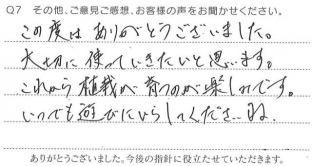 Q7 その他、ご意見ご感想、お客様の声をお聞かせください。
この度は ありがとうございました。
大切に 使っていきたいと思います。
これから 植栽が 育つのが 楽しみです。
いつでも 遊びにいらしてくださいね
ありがとうございました。今後の指針に役立たせていただきます。